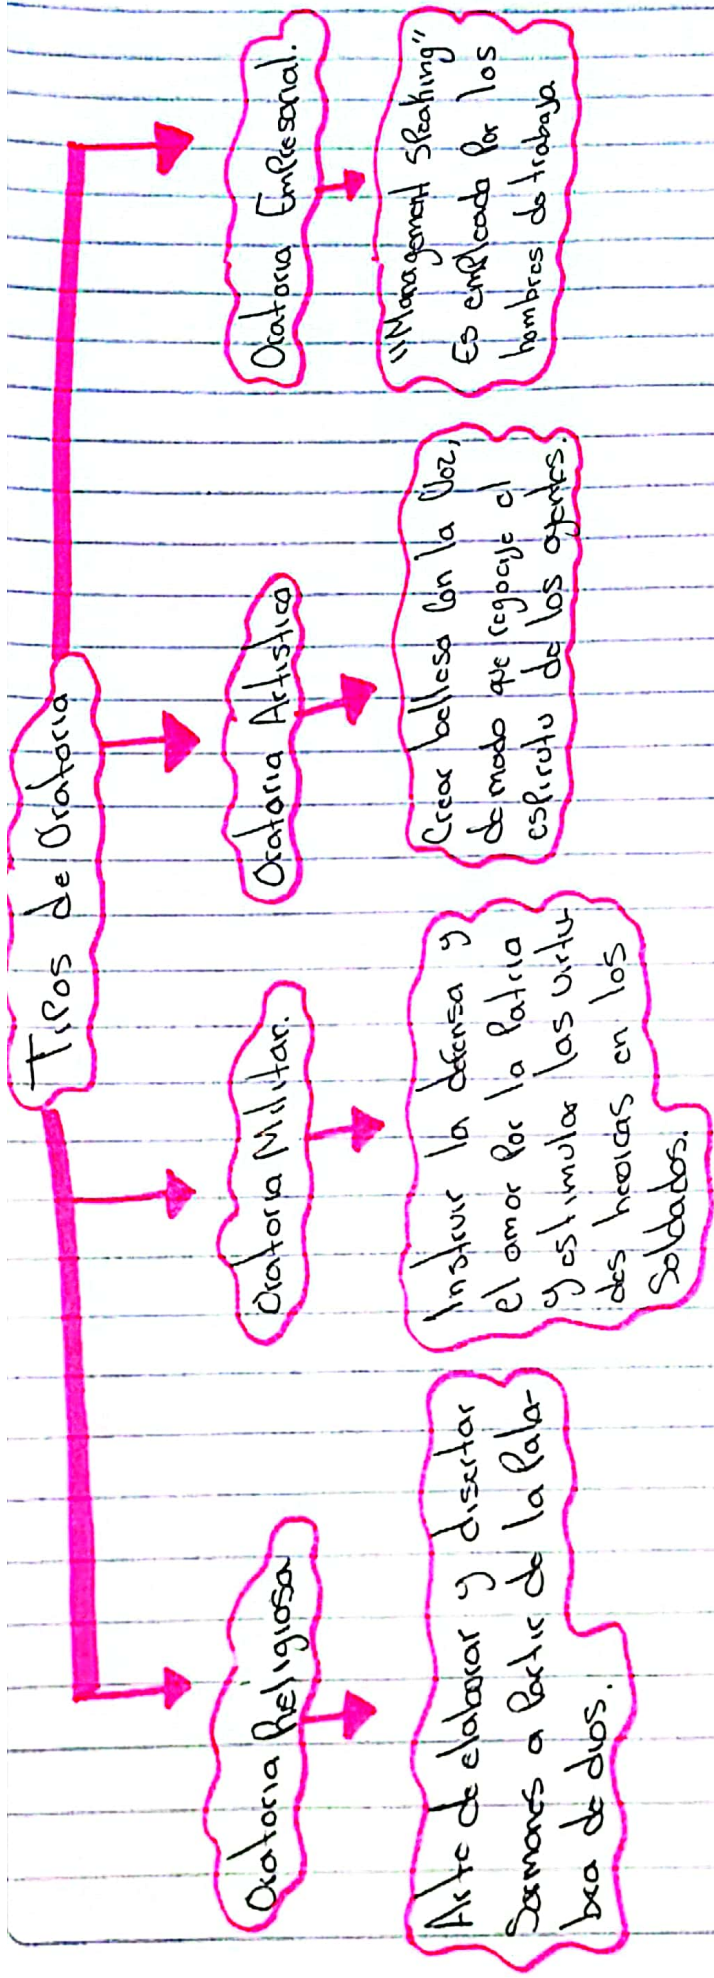 Tipos de Oratoria
Oratoria Religiosa
Arte de elaborar y disertar
Sermones a Partir de la Pala-
bra de dios.
Oratoria Militar.
Instruir la defensa y
el amor Por la Patria
y estimular las virtu
des heroicas en los
Soldados.
Oratoria Artistica
Crear bellesa con la Voz,
de modo que regocije el
espirutu de los oyentes.
Oratoria Empresarial.
"Management Speaking"
Es empleada Por los
hombres de trabaja